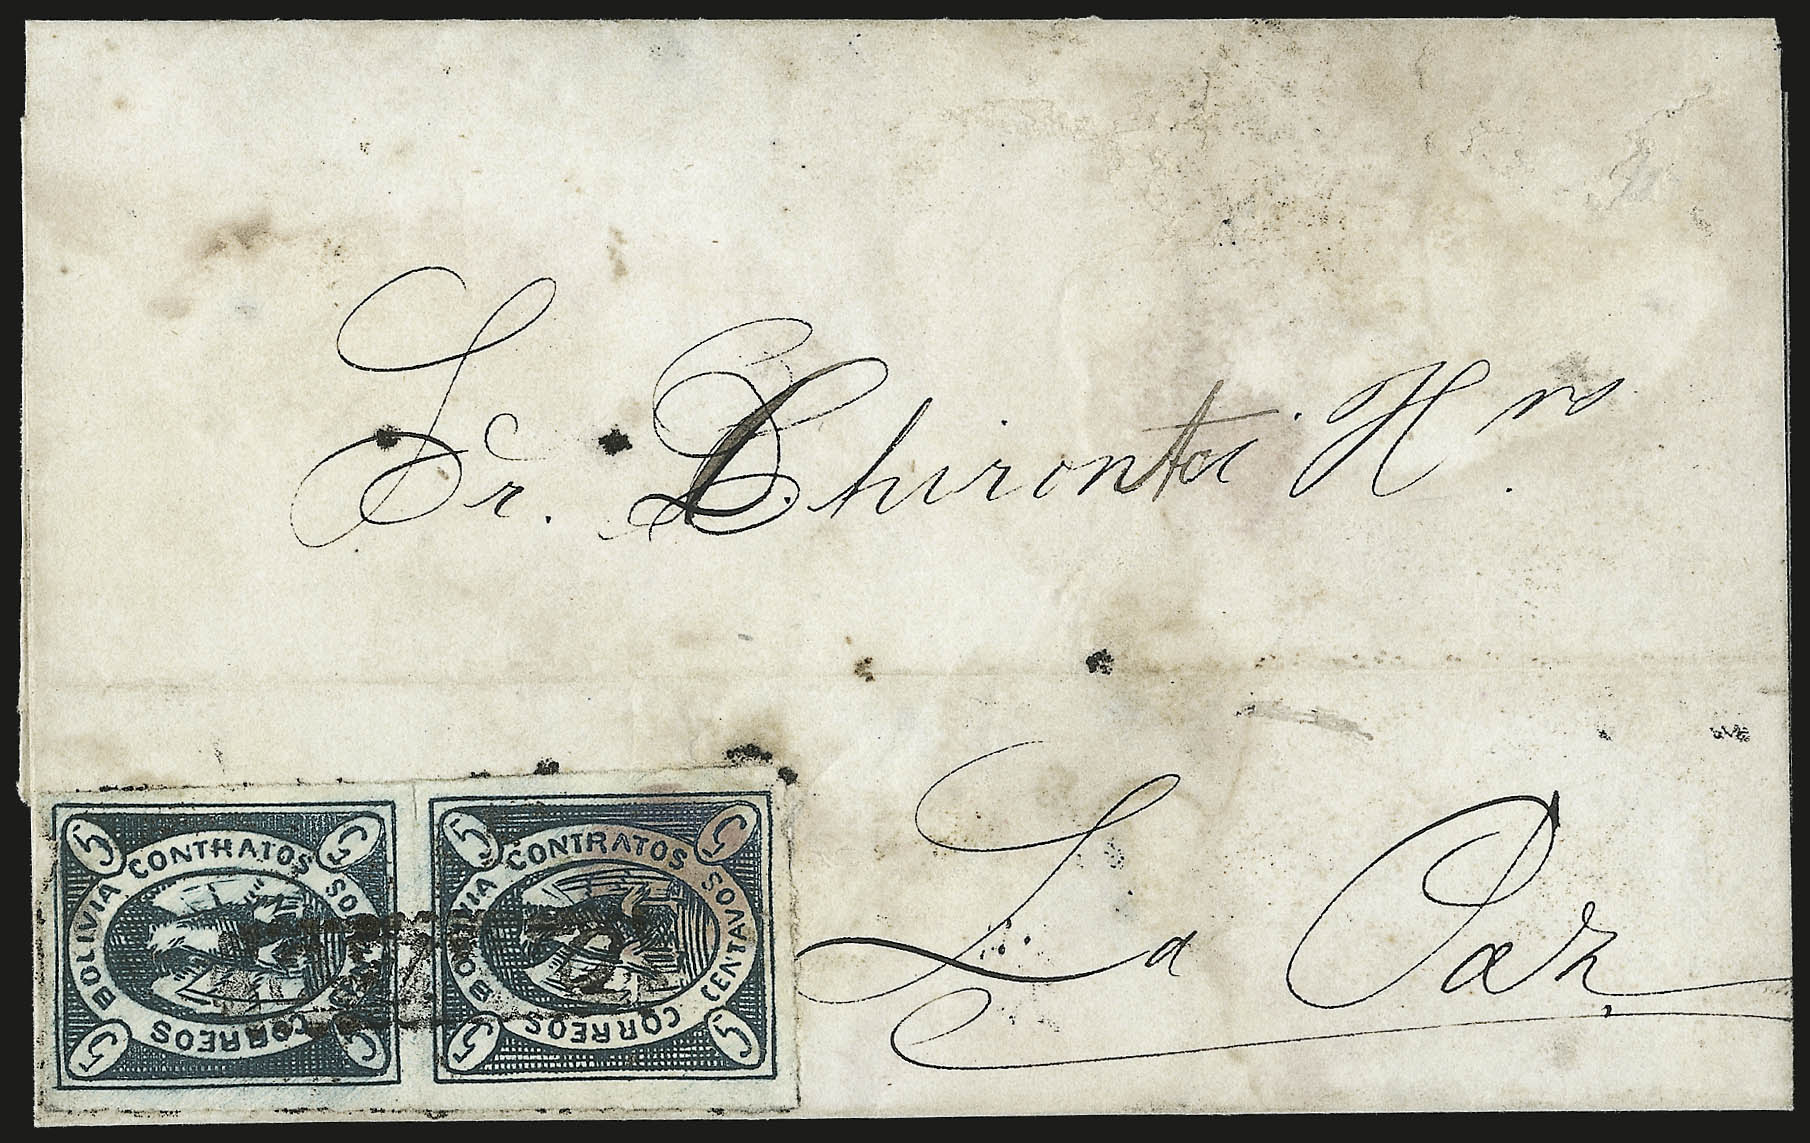 Sr. Chirontei Hn.
La Paz
5 5
CONTRATOS
BOLIVIA
CENTAVOS
CORREOS
5 5
5 5
CONTRATOS
BOLIVIA
CENTAVOS
CORREOS
5 5